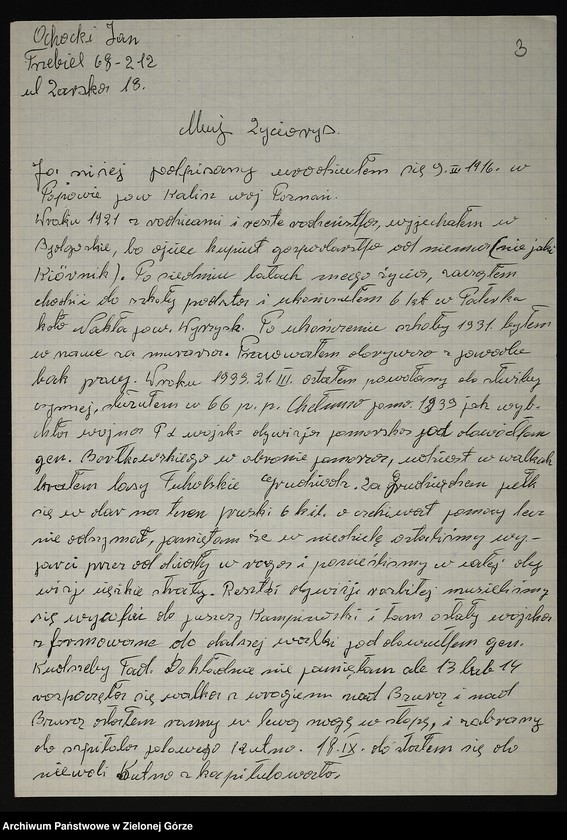 Ochocki Jan
Trzebiel 68-212
ul Żarska 18.
3
Muj Życiorys.
Ja niżej podpisany urodziułem się 9.III 1916. w
Popowie pow Kalisz woj Poznań.
W roku 1921 z rodzicami i resztę rodzeństfa, wyjechałem w
Bydgoskie, bo ojciec kupiuł gospodarstfo od niemca (nie jaki
Kiörvnik). Po siedmiu latach mego życia, zacząłem
chodzić do szkoły podsta i ukończułem 6 kl w Paterku
koło Nakła pow. Wyrzysk. Po ukończeniu szkoły 1931. byłem
w nauce za murarza. Pracowałem dorywczo z powodu
brak pracy. W roku 1939. 21. III. ostałem powołany do służby
czynnej, służułem w 66 p.p. Chełmno pomo. 1939 jak wyb-
chła wojna P z wojska dywizja pomorska pod dowódtfam
gen. Bortkowskiego w obronie pomorza, udział w walkach
brałem lasy Tucholskie Grudziądz. Za Grudziądzem pułk
się w dar na teren pruski 6 kil. o czekiwał pomocy lecz
nie odzymał, pamiętam że w niedzielę ostaliśmy wy-
parci przez od działy w roga i ponieśliśmy w całej dby
wizji ciężkie straty. Resztki dywizji rozbitej musieliśmy
się wycofać do puszczy Kampinoski i tam ostały wojska
z formowane do dalszej walki pod dowudtfem gen.
Kudszeby Tad. Dokładnie nie pamiętam ale 13 lub 14
rozpoczęła się walka z wrogiem nad Bzurą i nad
Bzurą ostałem ranny w lewą nogę w stopę, i zabrany
do szpitala polowego Kutno. 18.IX. dostałem się do
niewoli Kutno z kapitulowało.
Archiwum Państwowe w Zielonej Górze